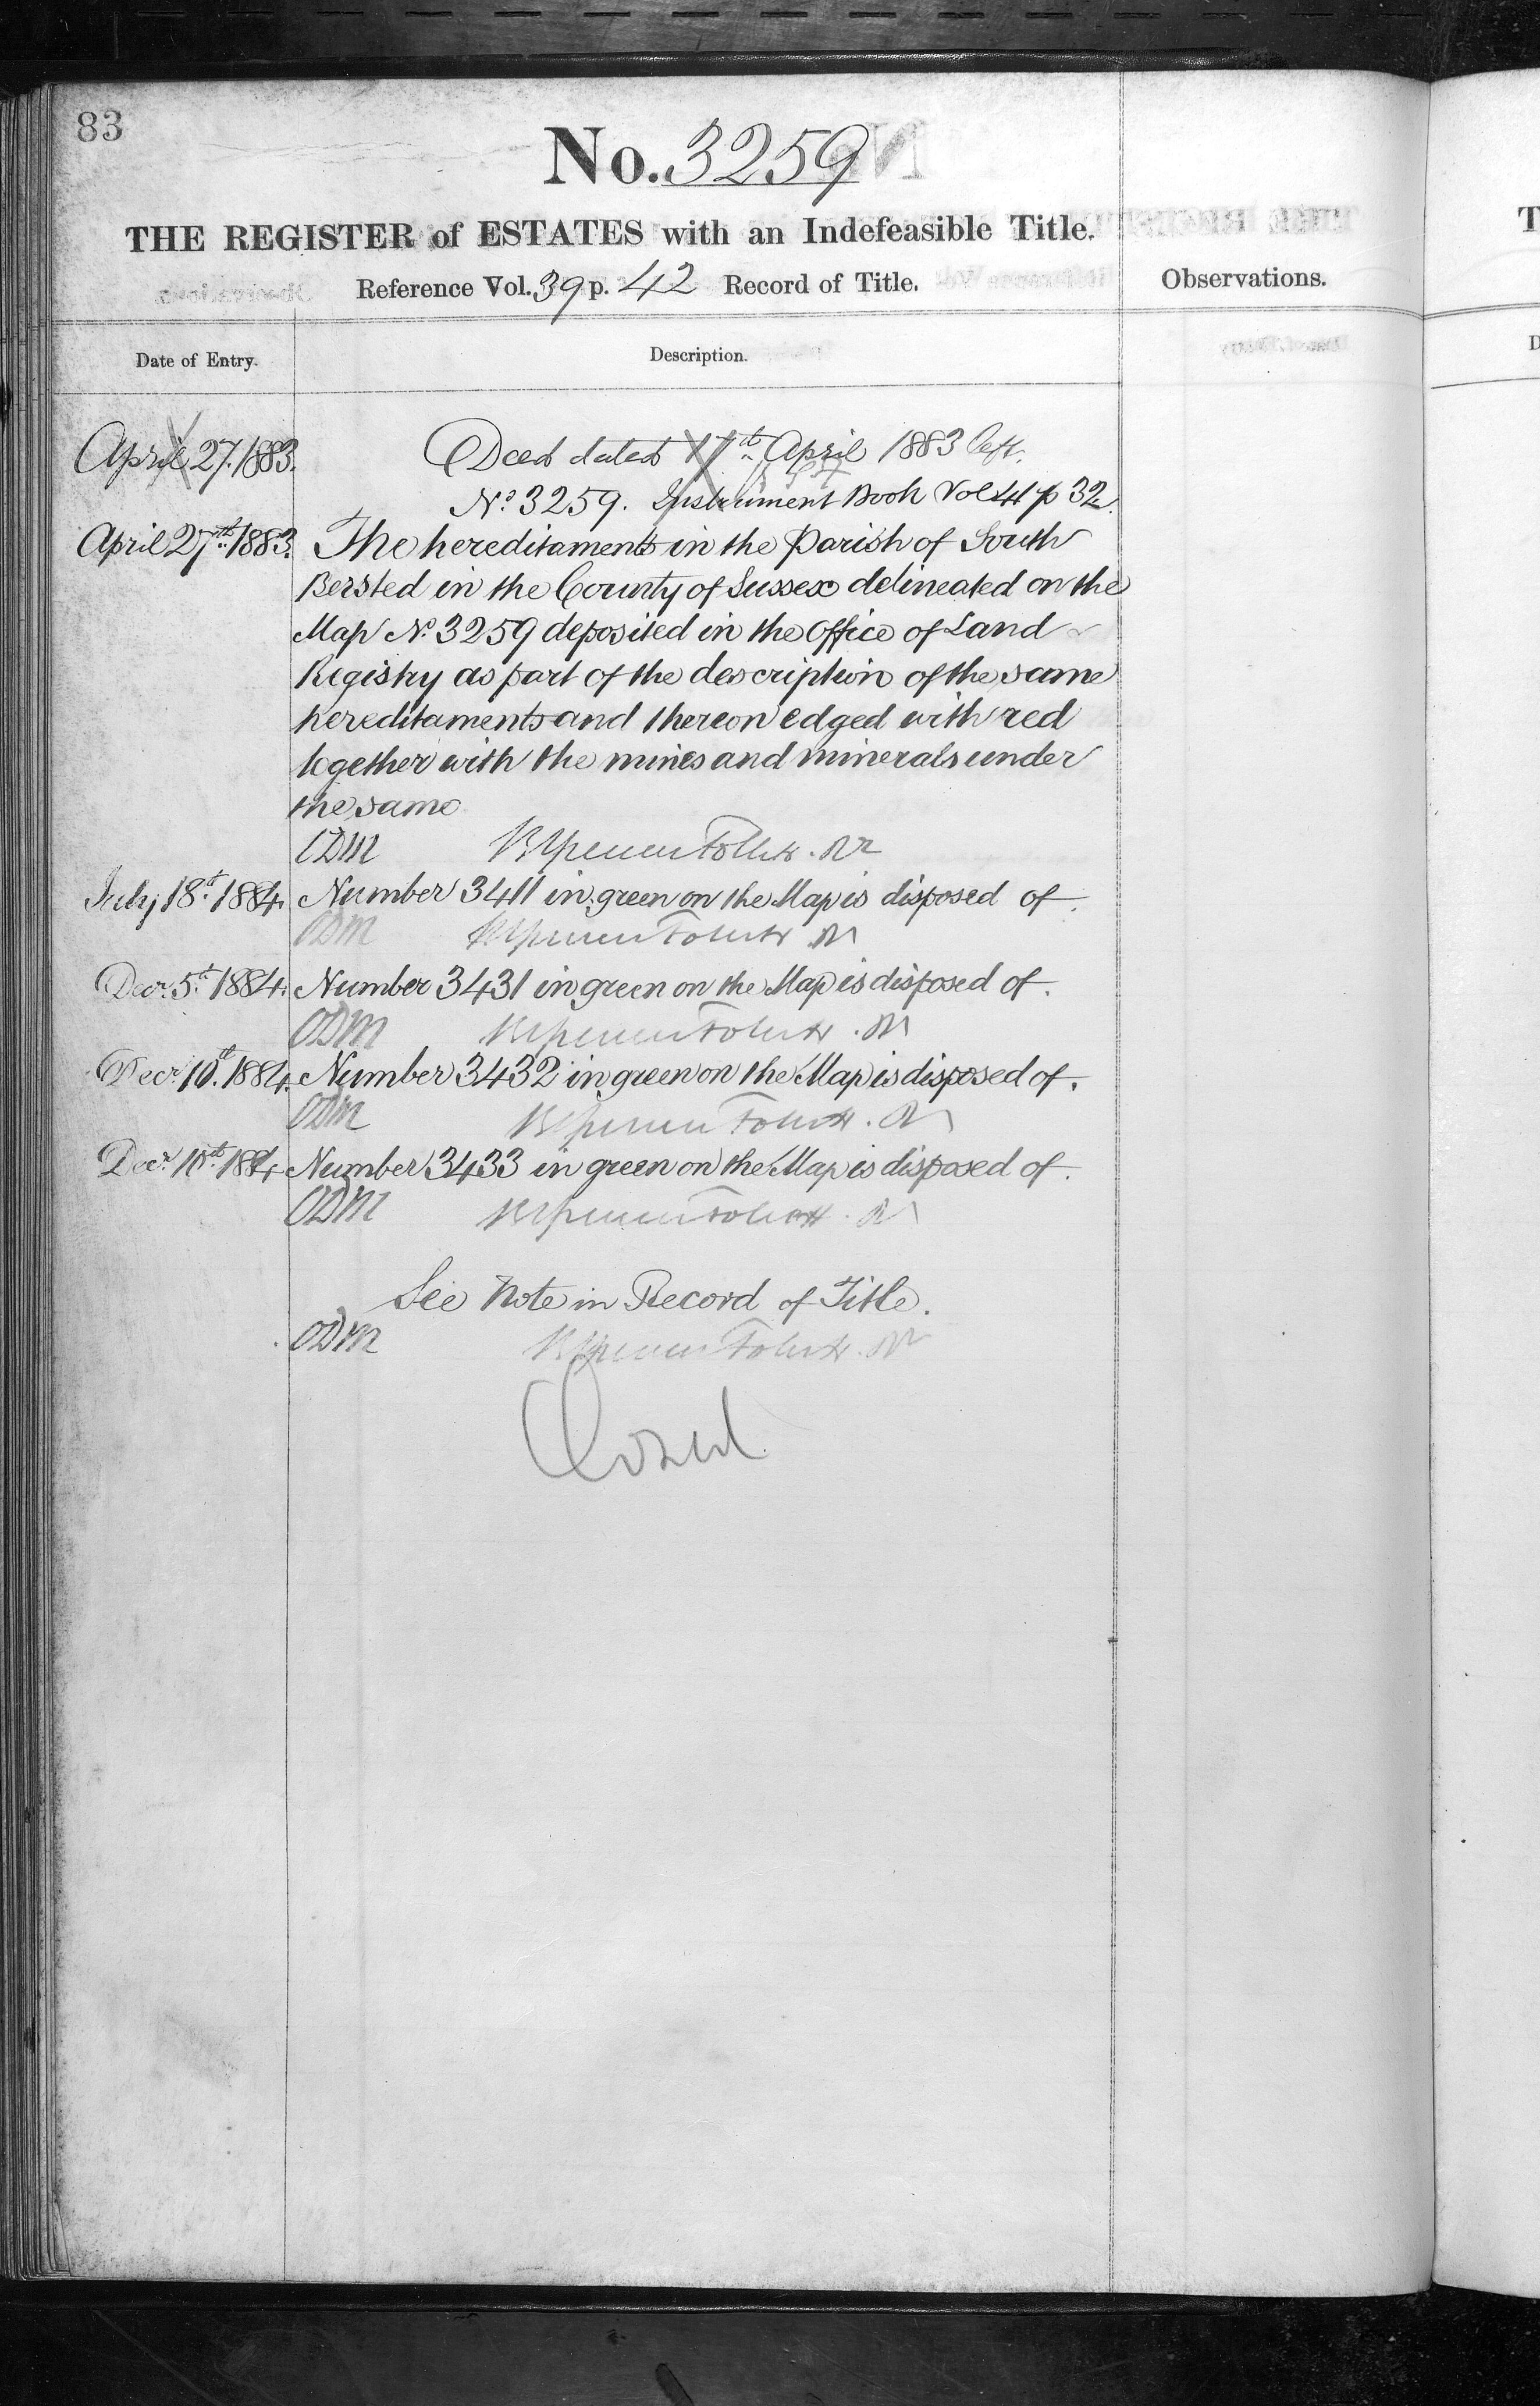 83
No. 3259
THE REGISTER of ESTATES with an Indefeasible Title.
Reference Vol. 39 p. 42 Record of Title.
Observations.
Date of Entry.
Description.
April 27. 1883. Deed dated 17th April 1883 left.
No. 3259. Instrument Book Vol 41 p 32.
April 27th 1883. The hereditaments in the Parish of South
Bersted in the County of Sussex delineated on the
Map No. 3259 deposited in the Office of Land
Registry as part of the description of the same
hereditaments and thereon edged with red
together with the mines and minerals under
the same
ODM
July 18th 1884. Number 3411 in green on the Map is disposed of.
ODM
Decr. 5th 1884. Number 3431 in green on the Map is disposed of.
ODM
Decr. 10th 1884. Number 3432 in green on the Map is disposed of.
ODM
Decr. 10th 1884 Number 3433 in green on the Map is disposed of.
ODM
See Note in Record of Title.
ODM
Closed